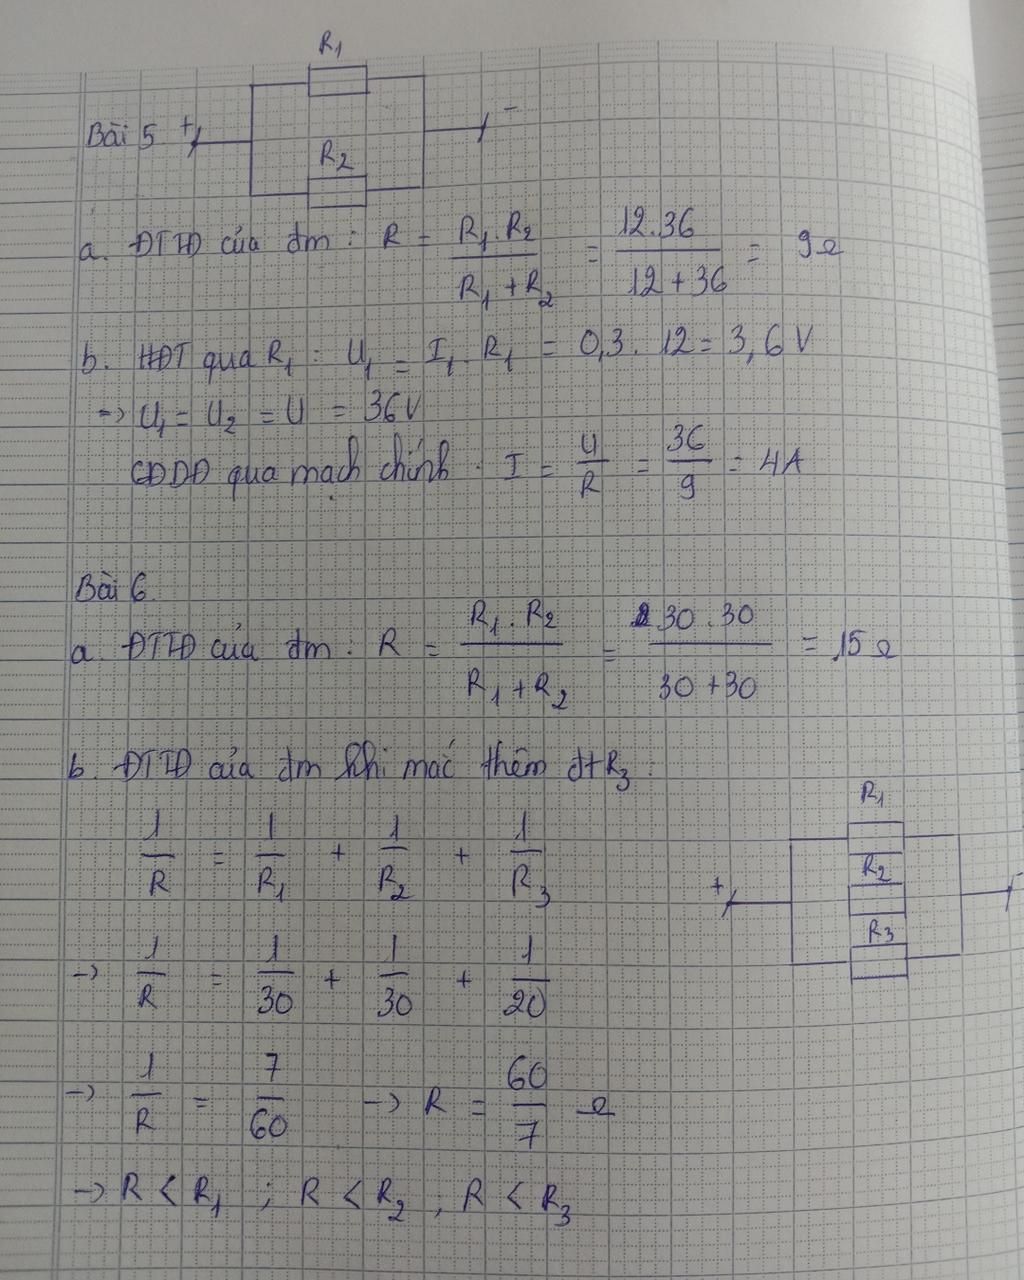 R₁
Bài 5 + -
R₂
a. ĐTTĐ của đm : R = (R₁ . R₂)/(R₁ + R₂) = (12.36)/(12 + 36) = 9Ω
b. HĐT qua R₁ : U₁ = I₁ . R₁ = 0,3 . 12 = 3,6 V
-> U₁ = U₂ = U = 36V
CĐDĐ qua mạch chính : I = U/R = 36/9 = 4A
Bài 6
a. ĐTTĐ của đm : R = (R₁ . R₂)/(R₁ + R₂) = (30 . 30)/(30 + 30) = 15 Ω
b. ĐTTĐ của đm khi mắc thêm đt R₃ :
1/R = 1/R₁ + 1/R₂ + 1/R₃
R₁
R₂
+ -
R₃
-> 1/R = 1/30 + 1/30 + 1/20
-> 1/R = 7/60 -> R = 60/7 Ω
-> R < R₁ ; R < R₂ , R < R₃